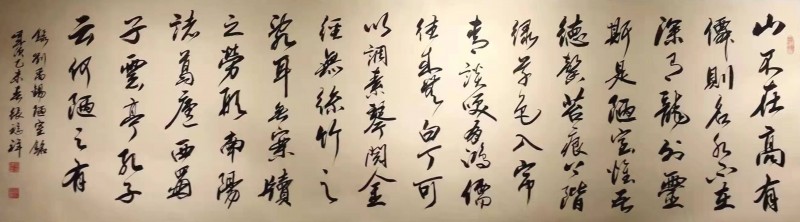 山不在高有
僊則名水不在
深有龍則靈
斯是陋室惟吾
德馨苔痕上階
綠草色入帘
青談笑有鴻儒
往来無白丁可
以調素琴閱金
經無絲竹之
亂耳無案牘
之勞形南陽
諸葛廬西蜀
子雲亭孔子
云何陋之有
錄劉禹錫陋室銘
乙未春張